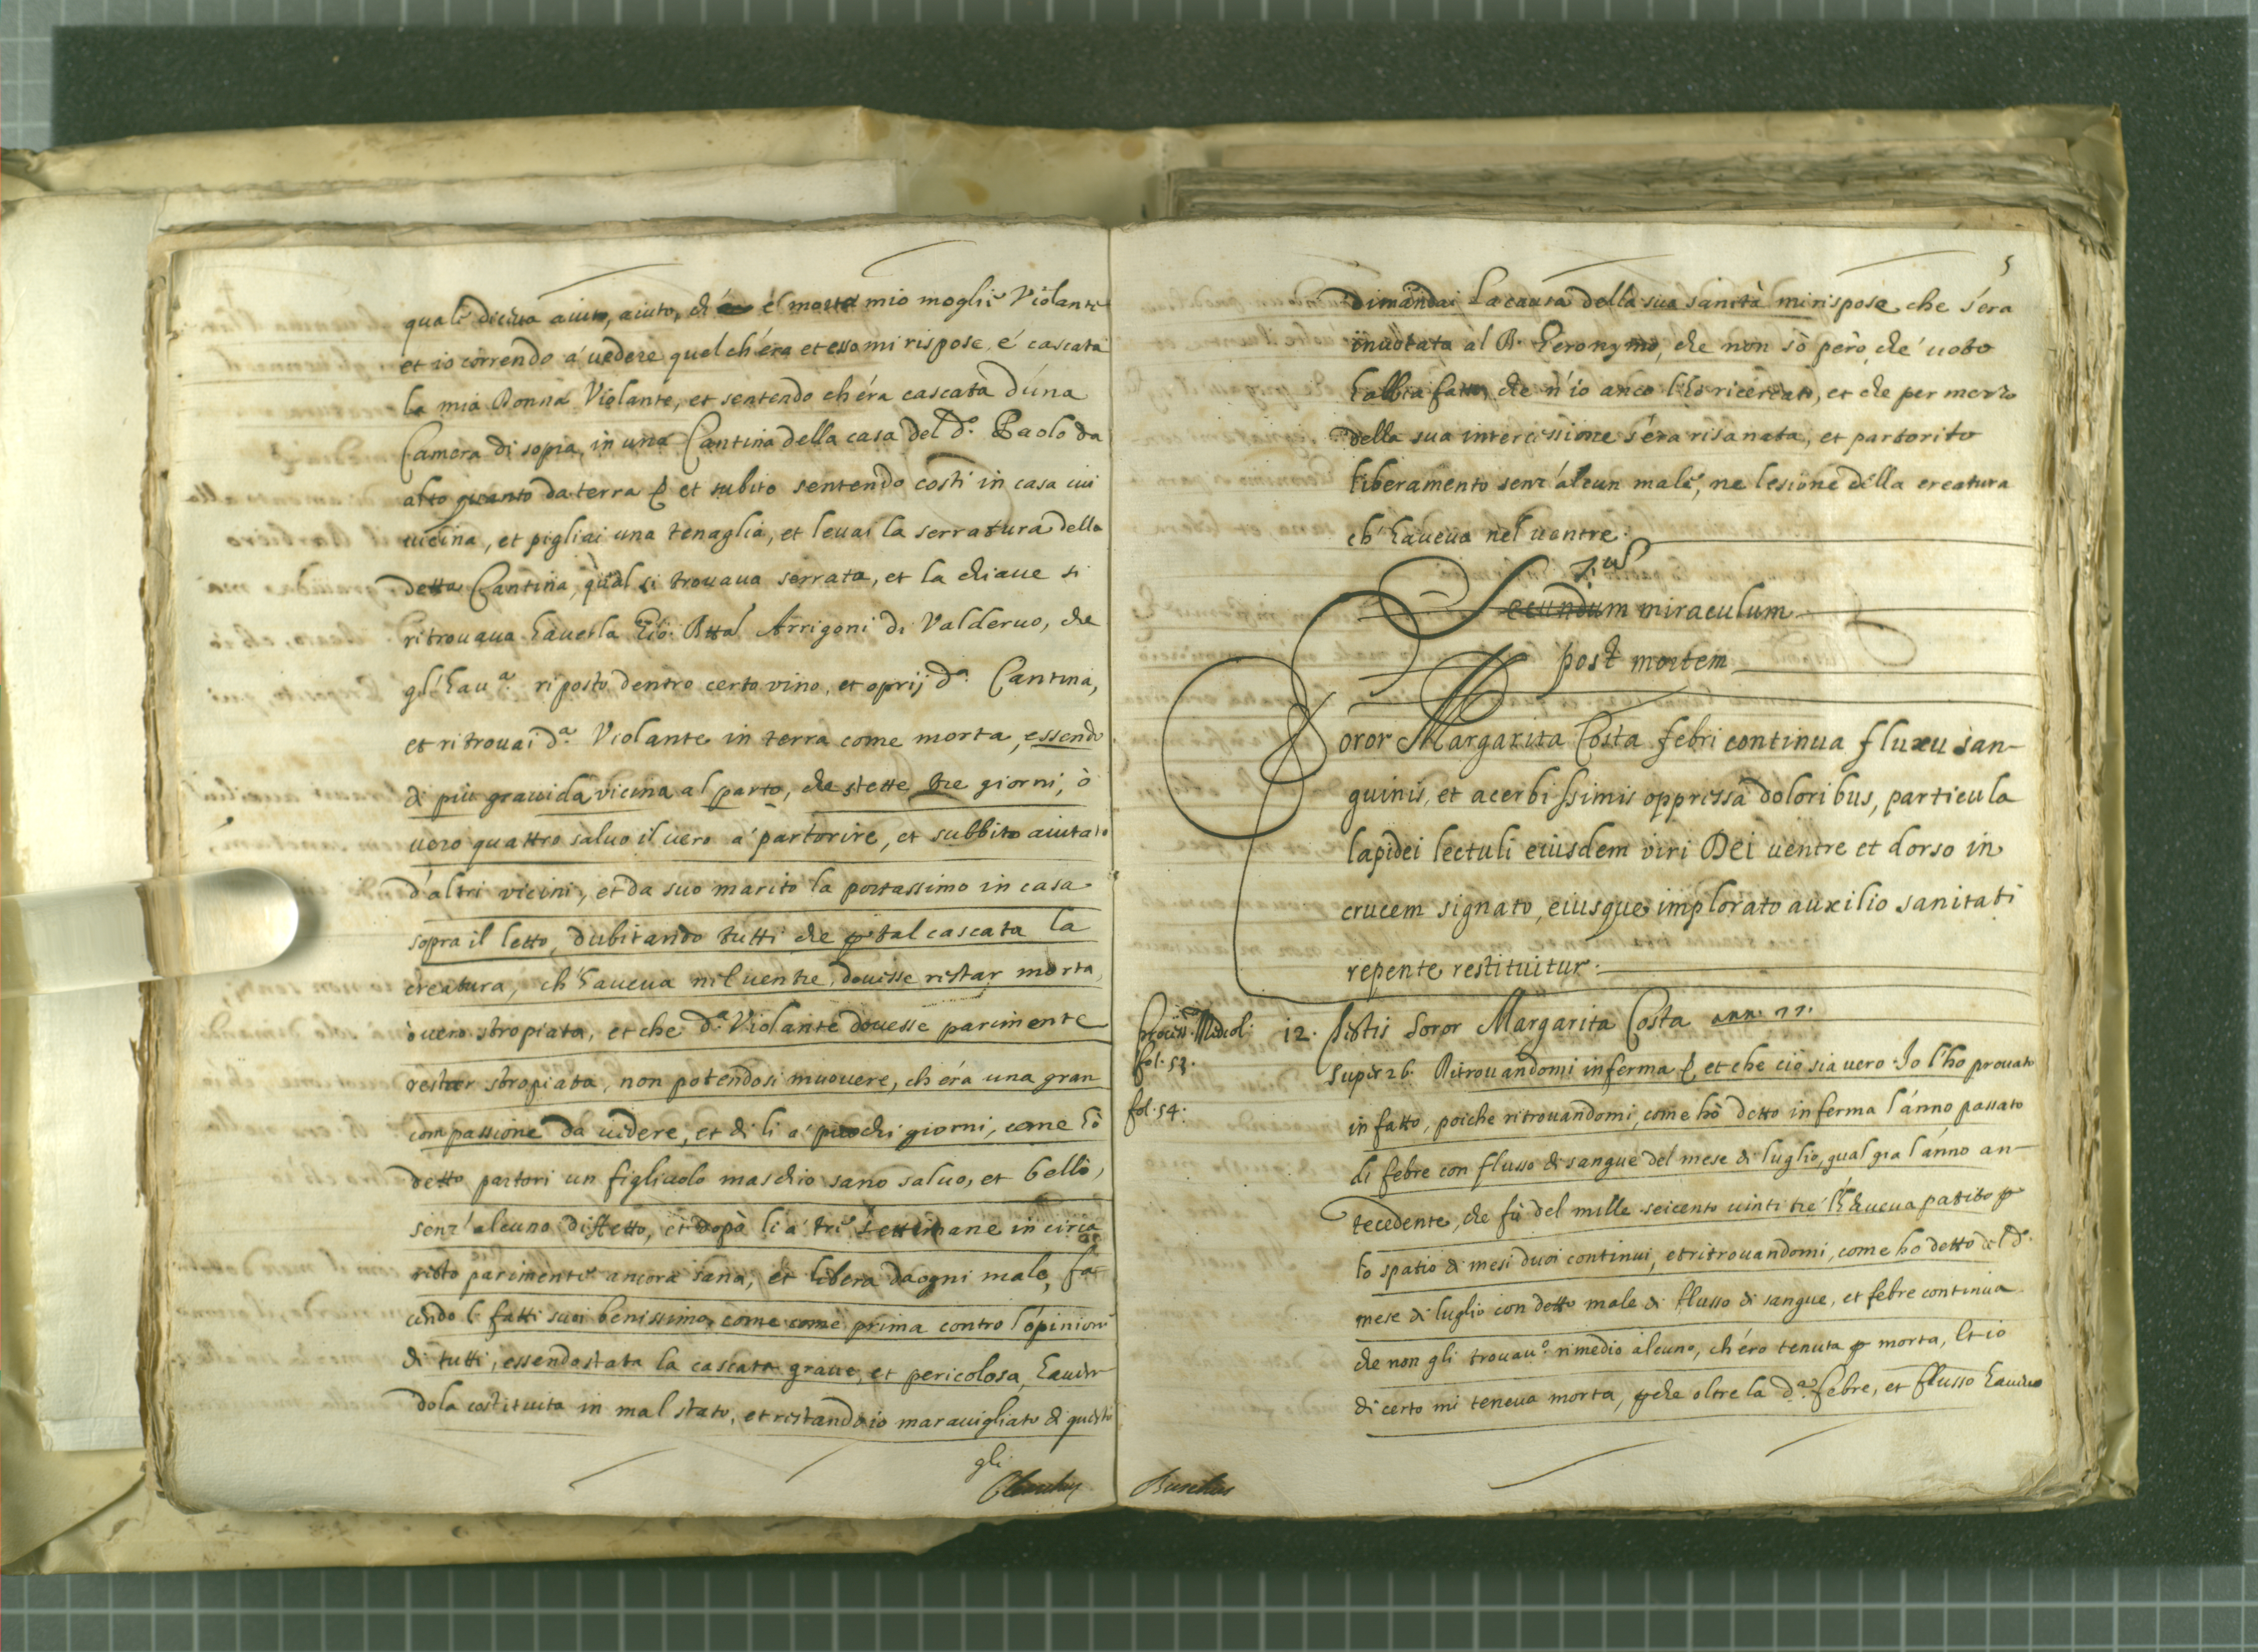 quale diceua aiuto, aiuto, ch' é morta mio moglie Violante
et io correndo a' uedere quel ch'éra et esso mi rispose, é cascata
la mia Donna Violante, et sentendo ch'éra cascata d'una
Camera di sopra, in una Cantina della casa del d.º Paolo da
alto quanto da terra et subito sentendo costi in casa cui
uicina, et pigliai una tenaglia, et leuai la serratura della
detta Cantina, qual si trouaua serrata, et la chiaue si
ritrouaua hauerla Gio: Btta Arrigoni di Valderuo, che
gl'hau.ª riposto dentro certo vino, et oprij d.ª Cantina,
et ritrouai d.ª Violante in terra come morta, essendo
di più grauida vicina al parto, che stette tre giorni, ò
uero quattro saluo il uero a' partorire, et subbito aiutato
d'altri vicini, et da suo marito la portassimo in casa
sopra il letto, dubitando tutti che p tal cascata la
creatura, ch'haueua nel uentre, douesse restar morta,
ò uero stropiata, et che d.ª Violante douesse parimente
restar stropiata, non potendosi muouere, ch'éra una gran
compassione da uedere, et di li a' puochi giorni, come hò
detto partori un figliuolo maschio sano saluo, et bello,
senz' alcuno diffetto, et dopò li a' tre settimane in circa
restò parimente ancora sana, et libera da ogni male, fa
cendo li fatti suoi benissimo, come come prima contro l'opinione
di tutti, essendo stata la cascata graue, et pericolosa, hauen
dola costituita in mal stato, et restando io marauigliato di questo
gli
5
dimandai la causa della sua sanità mi rispose che s'era
inuotata al B. Geronymo, che non sò però che' uoto
habbia fatto, che n'io anco l'hò ricercato, et che per merito
della sua intercessione s'éra risanata, et partorito
liberamente senz'álcun male, ne lesione della creatura
ch'haueua nel uentre.
Secundum miraculum
post mortem
Soror Margarita Costa febri continua fluxu san-
guinis, et acerbissimis oppressa doloribus, particula
lapidei lectuli eiusdem viri Dei uentre et dorso in
crucem signato, eiusque implorato auxilio sanitati
repente restituitur.
fol. 53.
12. Testis Soror Margarita Costa ann. 22.
super 26. Ritrouandomi inferma, et che ciò sia uero Io l'ho prouato
fol. 54.
in fatto, poiche ritrouandomi, come hò detto inferma l'ánno passato
di febre con flusso di sangue del mese di luglio, qual gia l'ánno an-
tecedente, che fù del mille seicento uinti tre l'haueua patito p
lo spatio di mesi duoi continui, et ritrouandomi, come ho detto del d.º
mese di luglio con detto male di flusso di sangue, et febre continua
che non gli trouau.º rimedio alcuno, ch'éro tenuta p morta, et io
di certo mi teneua morta, pche oltre la d.ª febre, et flusso haueuo